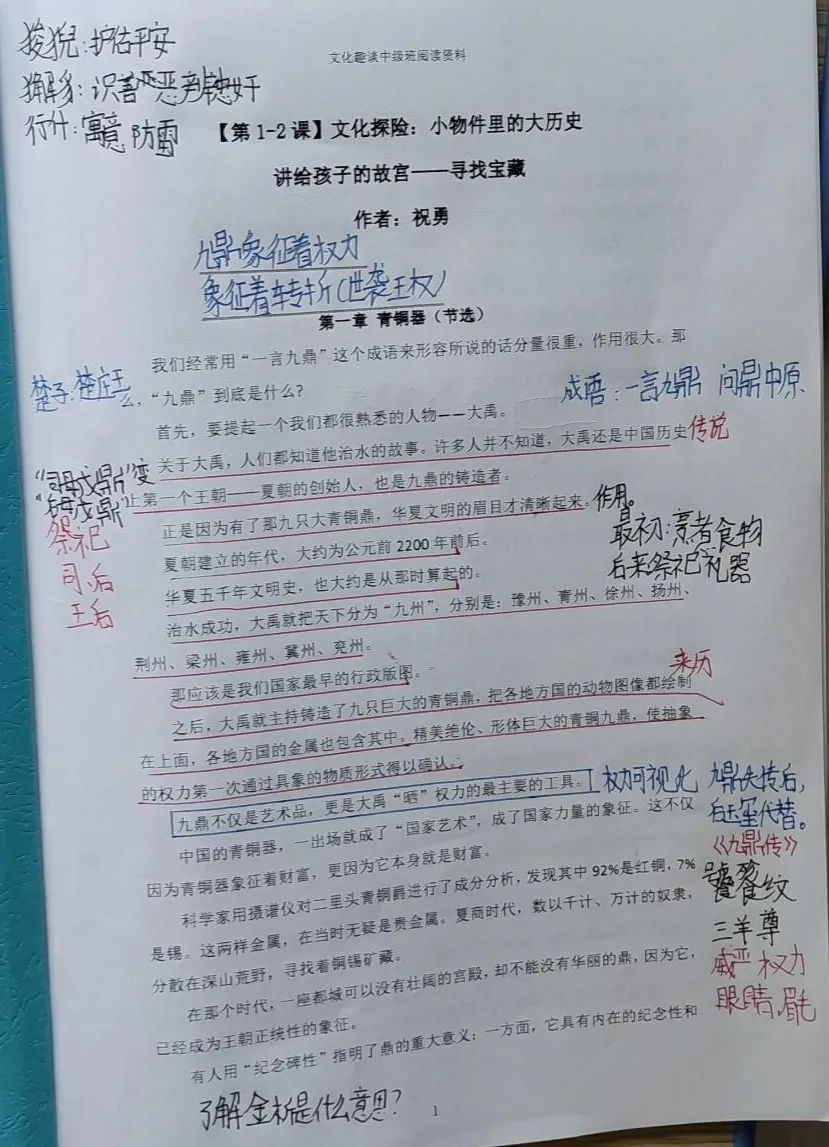 狻猊：护佑平安
獬豸：识善恶辨忠奸
行什：寓意防雷
文化趣谈中级班阅读资料
【第1-2课】文化探险：小物件里的大历史
讲给孩子的故宫——寻找宝藏
作者：祝勇
九鼎象征着权力
象征着转折(世袭王权)
第一章 青铜器（节选）
我们经常用“一言九鼎”这个成语来形容所说的话分量很重，作用很大。那
楚子：楚庄王
么，“九鼎”到底是什么？
成语：一言九鼎 问鼎中原
首先，要提起一个我们都很熟悉的人物——大禹。
关于大禹，人们都知道他治水的故事。许多人并不知道，大禹还是中国历史
传说
“司母戊鼎”变
“后母戊鼎”
上第一个王朝——夏朝的创始人，也是九鼎的铸造者。
祭祀
司、后
王后
正是因为有了那九只大青铜鼎，华夏文明的眉目才清晰起来。
作用。
最初：烹煮食物
后来祭祀礼器
夏朝建立的年代，大约为公元前2200年前后。
华夏五千年文明史，也大约是从那时算起的。
治水成功，大禹就把天下分为“九州”，分别是：豫州、青州、徐州、扬州、
荆州、梁州、雍州、冀州、兖州。
那应该是我们国家最早的行政版图。
来历
之后，大禹就主持铸造了九只巨大的青铜鼎，把各地方国的动物图像都绘制
在上面，各地方国的金属也包含其中。精美绝伦、形体巨大的青铜九鼎，使抽象
的权力第一次通过具象的物质形式得以确认。
九鼎不仅是艺术品，更是大禹“晒”权力的最主要的工具。
权力可视化
九鼎失传后，
右玉玺代替。
《九鼎传》
饕餮纹
三羊尊
威严 权力
眼睛，眉毛
中国的青铜器，一出场就成了“国家艺术”，成了国家力量的象征。这不仅
因为青铜器象征着财富，更因为它本身就是财富。
科学家用摄谱仪对二里头青铜爵进行了成分分析，发现其中92%是红铜，7%
是锡。这两样金属，在当时无疑是贵金属。夏商时代，数以千计、万计的奴隶，
分散在深山荒野，寻找着铜锡矿藏。
在那个时代，一座都城可以没有壮阔的宫殿，却不能没有华丽的鼎，因为它，
已经成为王朝正统性的象征。
有人用“纪念碑性”指明了鼎的重大意义：一方面，它具有内在的纪念性和
了解金析是什么意思？
1